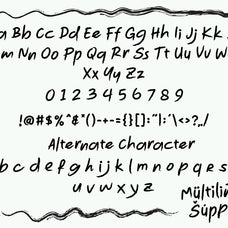 a Bb Cc Dd Ee Ff Gg Hh Ii Jj Kk
m Nn Oo Pp Qq Rr Ss Tt Uu Vv W
Xx Yy Zz
0 1 2 3 4 5 6 7 8 9
!@#$%^&*()-+-={}[]:"|:'\<>?,./
Alternate Character
b c d e f g h i j k l m n o p q r s
u v w x y z
Multilin
Supp